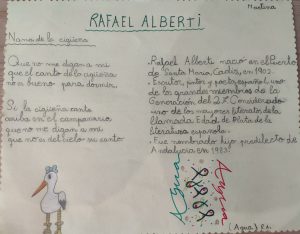 Martina
RAFAEL ALBERTI
Nana de la cigüeña
Que no me digan a mí
que el canto de la cigüeña
no es bueno para dormir.
Si la cigüeña canta
arriba en el campanario,
que no me digan a mí
que no es del cielo su canto
. Rafael Alberti nació en el Puerto
de Santa María, Cádiz, en 1902.
. Escritor, poeta español, uno
de los grandes miembros de la
Generación del 27. Considerado
uno de los mayores literatos de la
llamada Edad de Plata de la
literatura española.
. Fue nombrado hijo predilecto de
Andalucía en 1983.
Agua
Agua
(Agua) R.A.